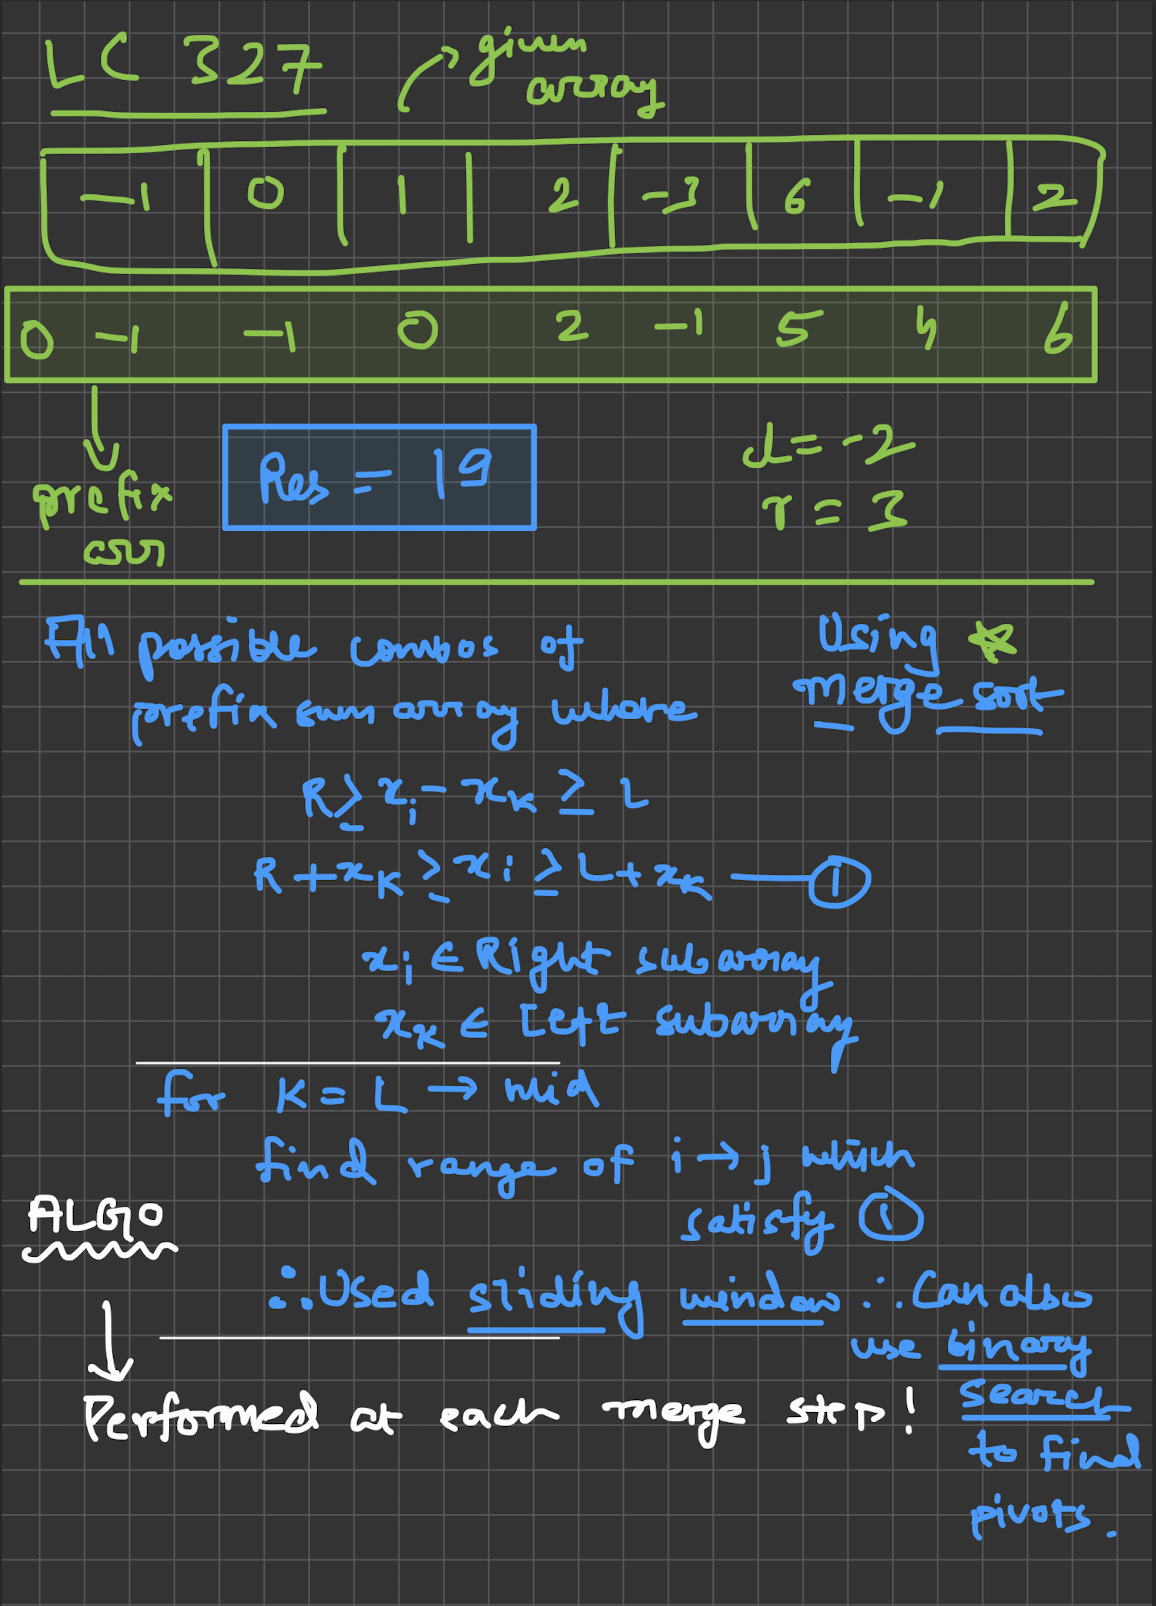 LC 327
given
array
-1 0 1 2 -3 6 -1 2
0 -1 -1 0 2 -1 5 4 6
prefix
arr
Res = 19
l = -2
r = 3
All possible combos of
prefix sum array where
Using
merge sort
R ≥ xᵢ - xₖ ≥ L
R + xₖ ≥ xᵢ ≥ L + xₖ — ①
xᵢ ∈ Right subarray
xₖ ∈ Left subarray
for K = L → mid
find range of i → j which
satisfy ①
ALGO
∴ Used sliding window ∴ Can also
use binary
search
to find
pivots.
Performed at each merge step!